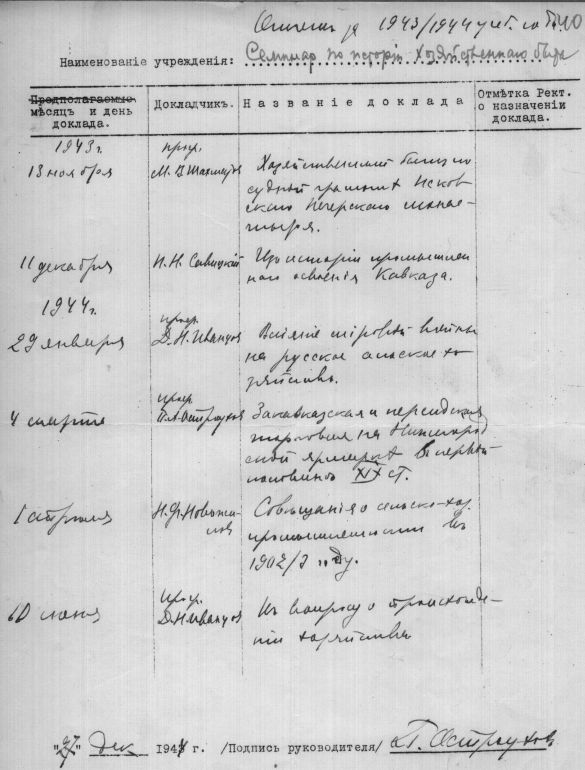 за 1943/1944 уч. год
Наименованіе учрежденія: Семинар по исторіи хозяйственнаго быта
Предполагаемые
мѣсяцъ и день
доклада.
Докладчикъ.
Названіе доклада
Отмѣтка Рект.
о назначеніи
доклада.
1943 г. проф.
13 ноября М. В. Шахматов Хозяйственный быт по
судной грамотѣ Псков-
скаго Печерскаго монас-
тыря.
11 декабря П. Н. Савицкій Из исторіи промышлен-
наго освоенія Кавказа.
1944 г.
проф.
29 января Д. Н. Иванцов Вліяніе міровой войны
на русское сельское хо-
зяйство.
проф.
4 марта Остроухов Закавказская и персидская
торговля на Нижегород-
ской ярмаркѣ в первой
половинѣ XIX ст.
1 апрѣля Н. Ф. Новожи-
лов Совѣщанія о сельско-хоз.
промышленности въ
1902/3 году.
проф.
10 июня Д. Н. Иванцов Къ вопросу о происхожде-
ніи хозяйства
"27" дек 1944 г. /Подпись руководителя/ П. Остроухов